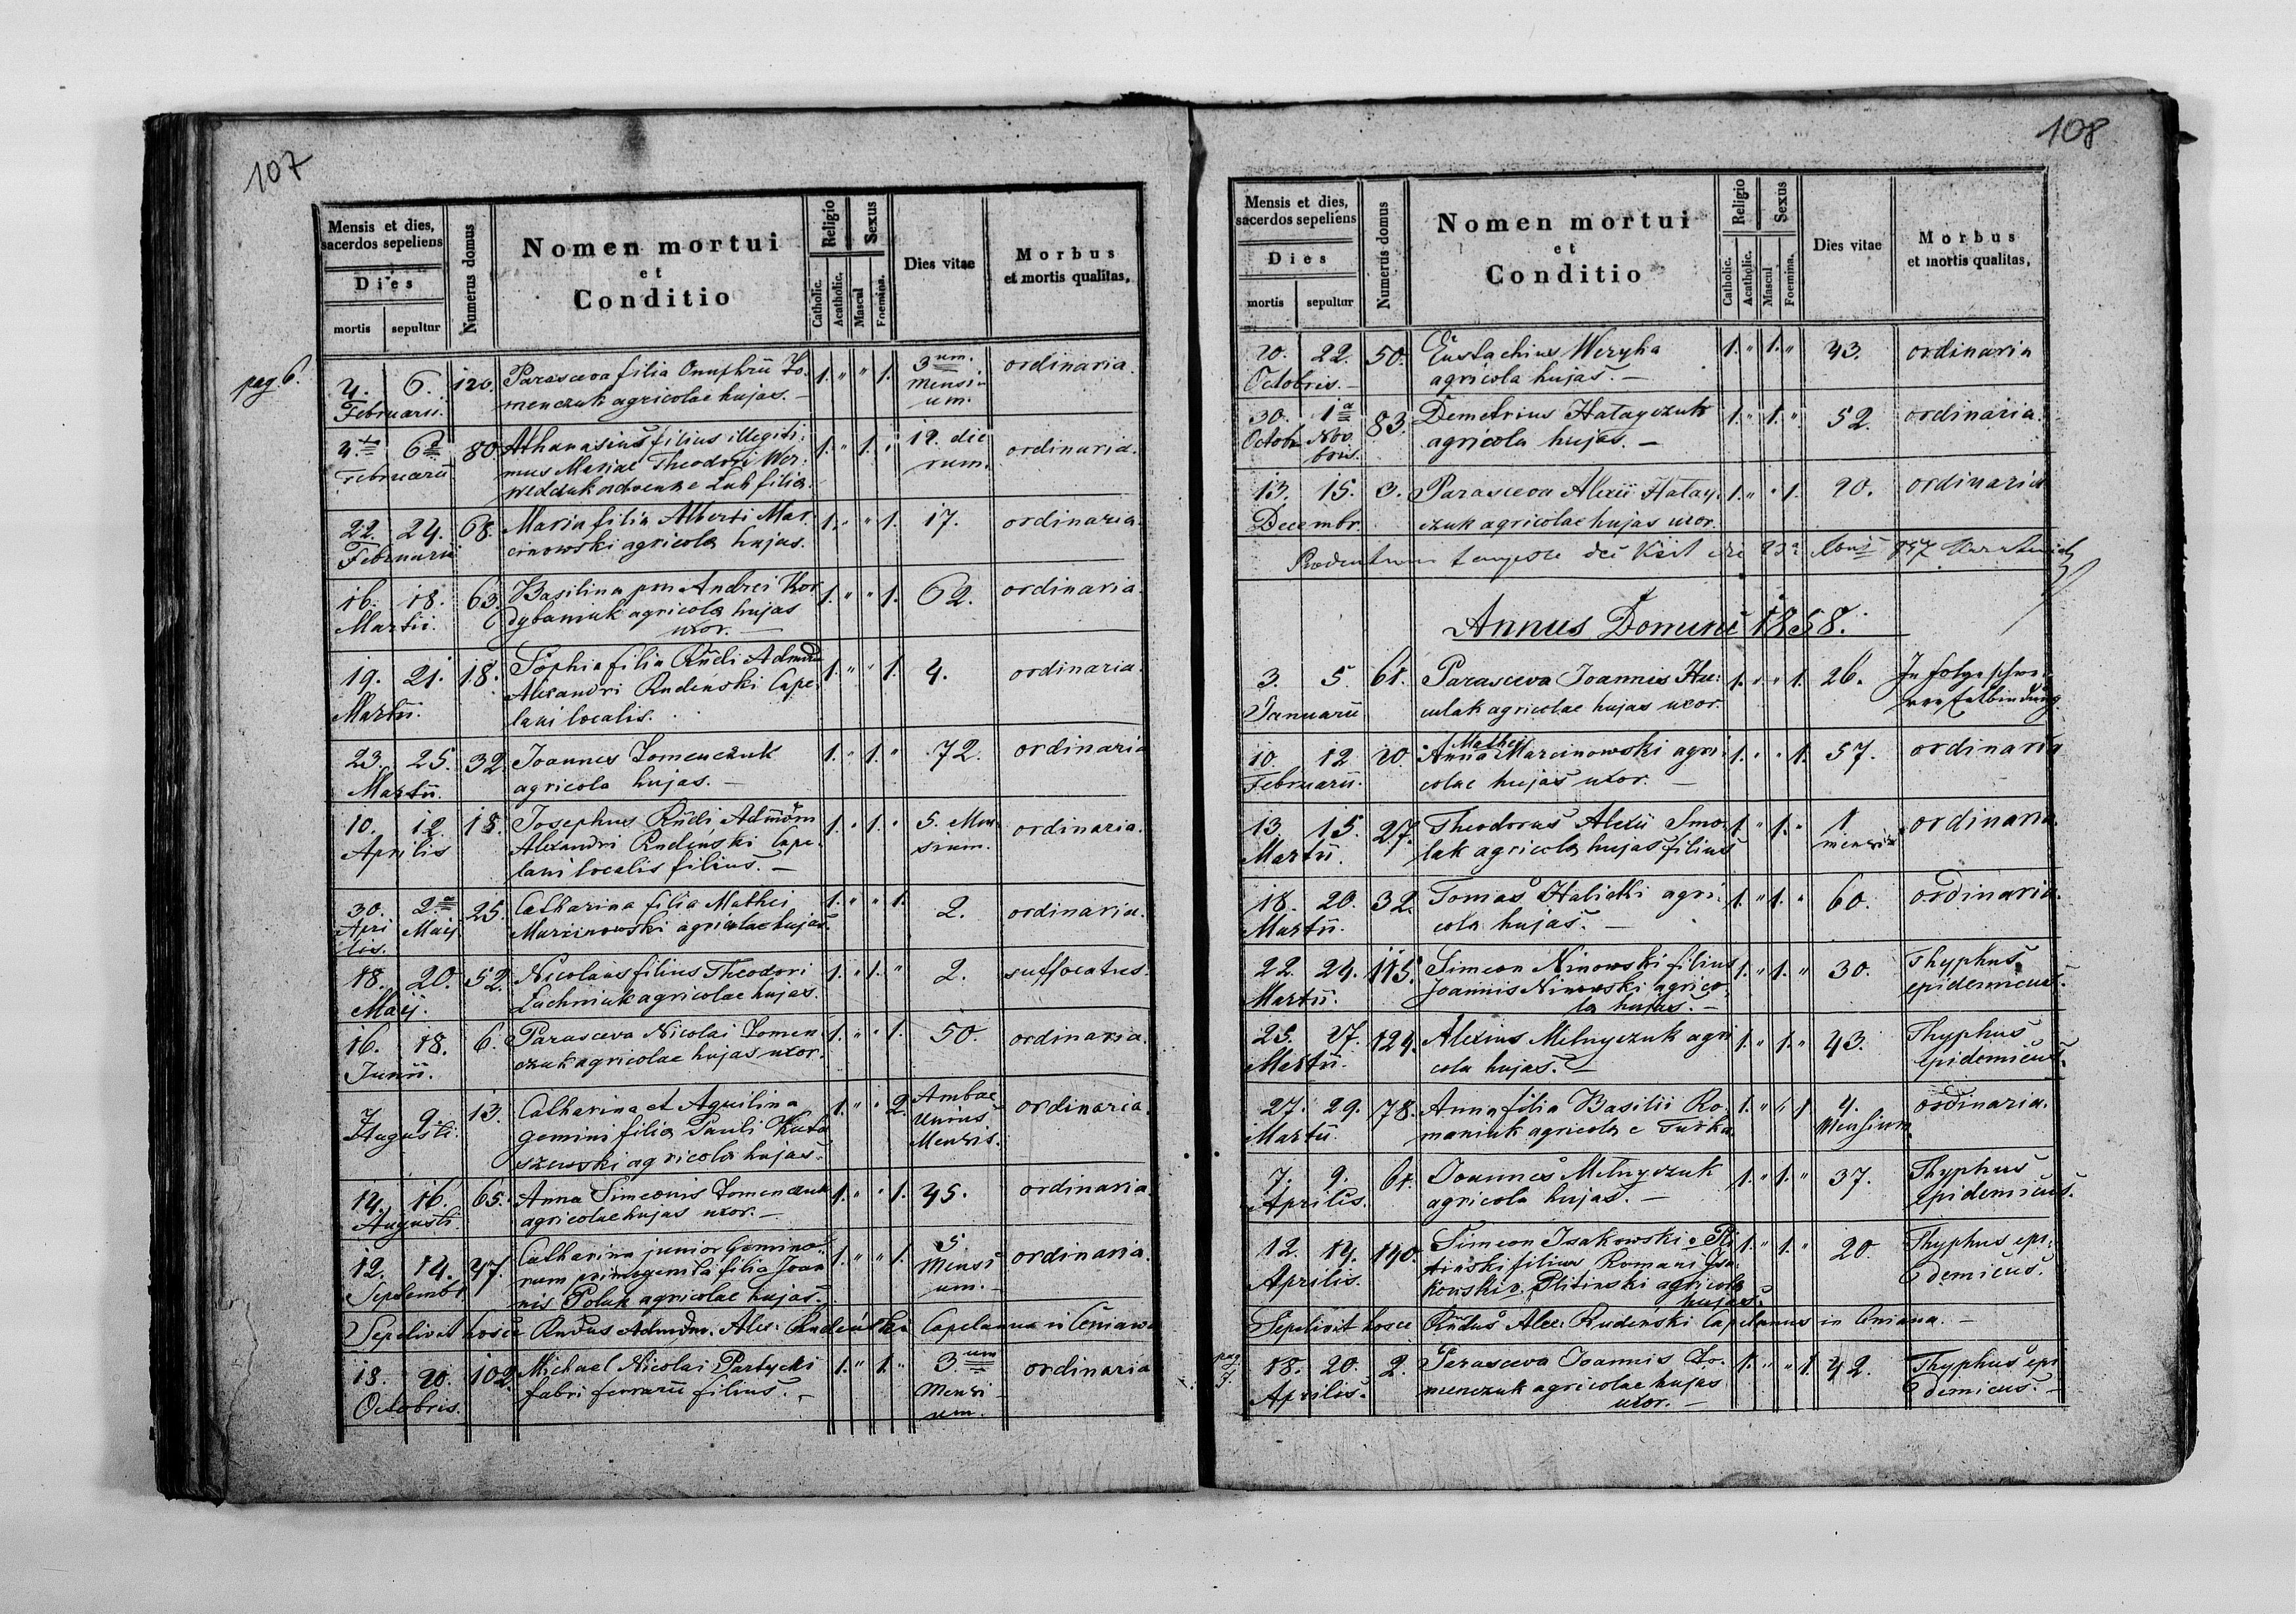 107
pag 6.
Mensis et dies,
sacerdos sepeliens
Dies
mortis sepultur
Numerus domus
Nomen mortui
et
Conditio
Religio
Catholic.
Acatholic.
Sexus
Mascul
Foemina.
Dies vitae
Morbus
et mortis qualitas.
4. 6. 120. Parasceva filia Onuphrii To- 1. " " 1. 3um. ordinaria.
Februarii. menczuk agricolae hujas. – Mensi-
um.
4. 6a 80 Athanasius filius illegiti- 1. " 1. " 12. die ordinaria.
Februarii mus Mariae Theodori rum.
filia.
22. 24. 68. Maria filia Alberti Mar- 1. " " 1. 17. ordinaria.
Februarii cinowski agricola hujas.
16. 18. 63. Basilina pm Andrei Kor 1. " " 1. 62. ordinaria.
Martii. dybaniuk agricola hujas
uxor. –
19. 21. 18. Sophia filia Rndi Admdu 1. " " 1. 4. ordinaria.
Martii. Alexandri Rudeński Cape-
lani localis.
23. 25. 32. Joannes Tomenczuk 1. " 1. " 72. ordinaria
Martii. agricola hujas. –
10. 12. 18. Josephus Rndi Admdm 1. " 1. " 5. Men ordinaria.
Aprilis Alexandri Rudenski Cape- sium.
lani localis filius. –
30. 2. 25. Catharina filia Mathei 1. " " 1. 2. ordinaria.
Apri Maij Marcinowski agricolae hujas.
lis.
18. 20. 52. Nicolaus filius Theodori 1. " 1. " 2. suffocatus.
Maij. Luchniuk agricolae hujas.
16. 18. 6. Parasceva Nicolai Tomen 1. " " 1. 50. ordinaria.
Junii. czuk agricolae hujas uxor.
7 9. 13. Catharina et Aquilina 1. " " 2. Ambae ordinaria.
Augusti. gemini filia Pauli Unius
szewski agricola hujas. Mensis.
14. 16. 65. Anna Simeonis Tomenczuk 1. " " 1. 45. ordinaria.
Augusti agricolae hujas uxor. –
12. 14. 47. Catharina junior Gemino- 1. " " 1. 5 ordinaria.
Septembr. rum primogenita filia Joan Mensi
nis Poluk agricolae hujas. um. –
Sepelivit hosce Rndus Admdm. Alex: Rudeński Capelanus in Ceniawa
18. 20. 102. Michael Nicolai Partycki 1. " 1. " 3um ordinaria
Octobris. fabri ferrarii filius. – Mensi-
um.
108
Mensis et dies,
sacerdos sepeliens
Dies
mortis sepultur
Numerus domus
Nomen mortui
et
Conditio
Religio
Catholic.
Acatholic.
Sexus
Mascul
Foemina.
Dies vitae
Morbus
et mortis qualitas.
20. 22. 50. Eustachius Weryha 1. " 1. " 43. ordinaria
Octobris. – agricola hujas. –
30. 1a 83. Demetrius Hatayczuk 1. " 1. " 52. ordinaria.
Octob Nov. agricola hujas. –
bris.
13. 15. 3. Parasceva Alexii Hatay- 1. " " 1. 20. ordinaria
Decembr. czuk agricolae hujas uxor.
tempore Visit
Annus Domini 1858.
3. 5. 61. Parasceva Joannis Hu- 1. " " 1. 26. In folge schwe-
Januarii culak agricolae hujas uxor. rer Entbindung.
Mathei
10. 12. 20. Anna Marcinowski agri- 1. " " 1. 57. ordinaria
Februarii. colae hujas uxor. –
13. 15. 27. Theodorus Alexii Smo- 1. " 1. " 1 ordinaria.
Martii. lak agricola hujas filius mensis
18. 20. 32. Tomas Halicki agri- 1. " 1. " 60. ordinaria.
Martii. cola hujas. –
22. 24. 115. Simeon Ninowski filius 1. " 1. " 30. Thyphus
Martii. Joannis Ninowski agrico- epidemicus.
la hujas. –
25. 27. 124. Alexius Melnyczuk agri 1. " 1. " 43. Thyphus
Martii. cola hujas. – epidemicus.
27. 29. 78. Anna filia Basilii Ro- 1. " " 1 4. ordinaria.
Martii. maniuk agricola e Turka Mensium.
7. 9. 61. Joannes Melnyczuk 1. " 1. " 37. Thyphus
Aprilis. agricola hujas. – epidemicus.
12. 14. 140. Simeon Isakowski v. Pli 1. " 1. " 20. Thyphus epi-
Aprilis. tinski filius Romani Isa- demicus.
kowski v. Plitinski agricola
hujas.
Sepelivit hosce Rndus Alex: Rudeński Capelanus in Ceniawa. –
pag
7.
18. 20. 2. Parasceva Joannis To- 1. " " 1. 42. Thyphus epi
Aprilis. menczuk agricolae hujas demicus. –
uxor. –